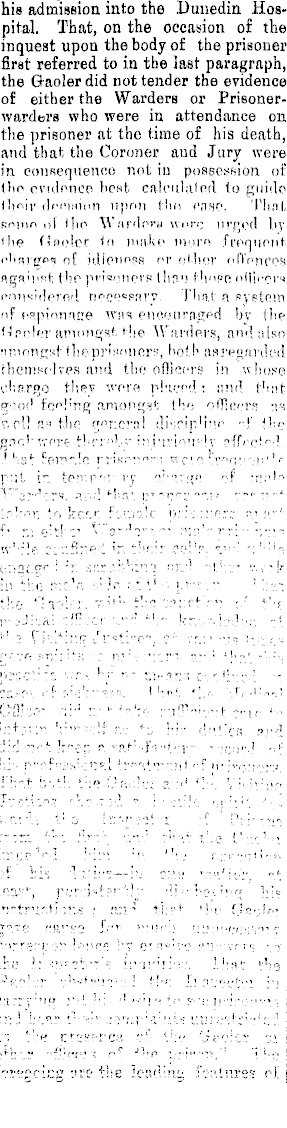 his admission into the Dunedin Hos-
pital. That, on the occasion of the
inquest upon the body of the prisoner
first referred to in the last paragraph,
the Gaoler did not tender the evidence
of either the Warders or Prisoner-
warders who were in attendance on
the prisoner at the time of his death,
and that the Coroner and Jury were
in consequence not in possession of
the evidence best calculated to guide
their decision upon the case. That
some of the Warders were urged by
the Gaoler to make more frequent
charges of idleness or other offences
against the prisoners than those officers
considered necessary. That a system
of espionage was encouraged by the
Gaoler amongst the Warders, and also
amongst the prisoners, both as regarded
themselves and the officers in whose
charge they were placed; and that
good feeling amongst the officers as
well as the general discipline of the
gaol were thereby injuriously affected.
That female prisoners were frequently
put in temporary charge of male
Warders, and that proper care was not
taken to keep female prisoners apart
from either Warders or male prisoners
while confined in their cells, and while
engaged in scrubbing and other work
in the male side of the prison. That
the Gaoler, with the sanction of the
medical officer and the knowledge of
the Visiting Justices, at various times
gave spirits to prisoners, and that this
practice was by no means confined to
cases of sickness. That the Medical
Officer did not take sufficient care to
inform himself as to his duties and
did not keep a satisfactory record of
his professional treatment of prisoners.
That both the Gaoler and the Visiting
Justices showed a hostile spirit to-
wards the Inspector of Prisons
from the first, and that the Gaoler
impeded him in the execution
of his duties—in one matter, at
least, persistently disobeying his
instructions; and that the Gaoler
gave cause for much unnecessary
correspondence by evasive answers to
the Inspector's inquiries. That the
Gaoler obstructed the Inspector in
carrying out his desire to see prisoners
and hear their complaints unrestricted
by the presence of the Gaoler or
other officers of the prison." The
foregoing are the leading features of